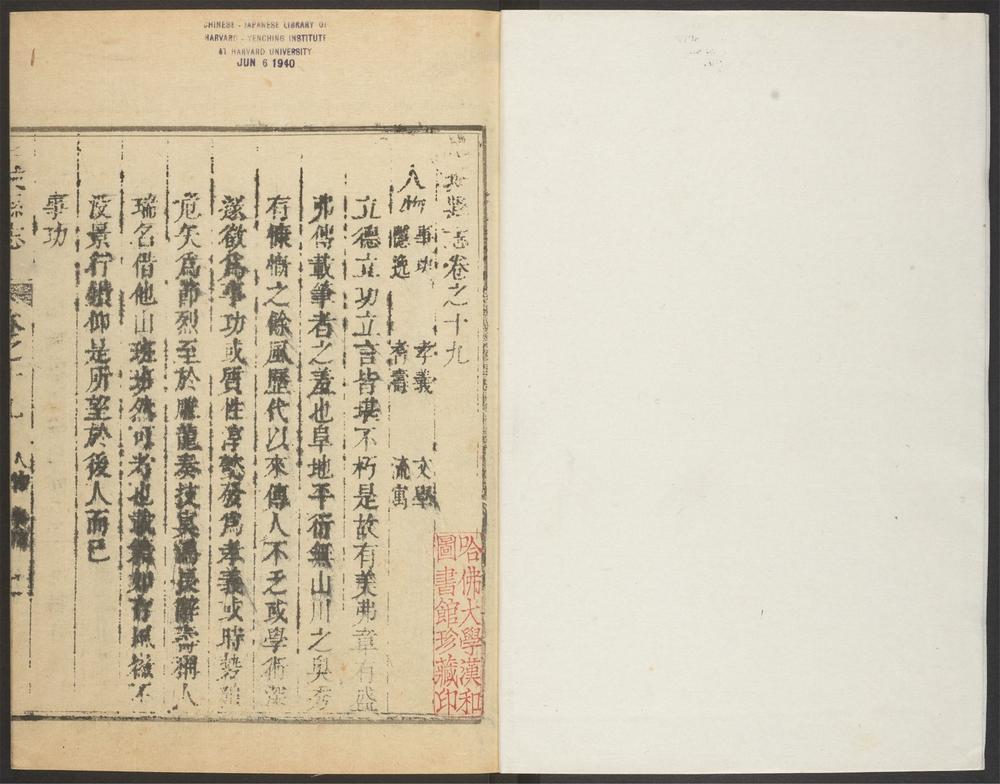 CHINESE - JAPANESE LIBRARY OF
HARVARD - YENCHING INSTITUTE
AT HARVARD UNIVERSITY
JUN 6 1940
縣志卷之十九
人物 事功 孝義 文學
隱逸 耆壽 流寓
立德立功立言皆堪不朽是故有美弗章有盛
弗傳載筆者之羞也阜地平衍無山川之奧秀
有慷慨之餘風歷代以來傳人不乏或學術深
邃欲為事功或質性 發為孝義或時勢
危矢為節烈至於雕龍奏技 人
瑞名借他山班班然可考也 如有
沒景行 仰是所望於後人而已
事功
縣志 卷之十九 人物
哈佛大學漢和
圖書館珍藏印